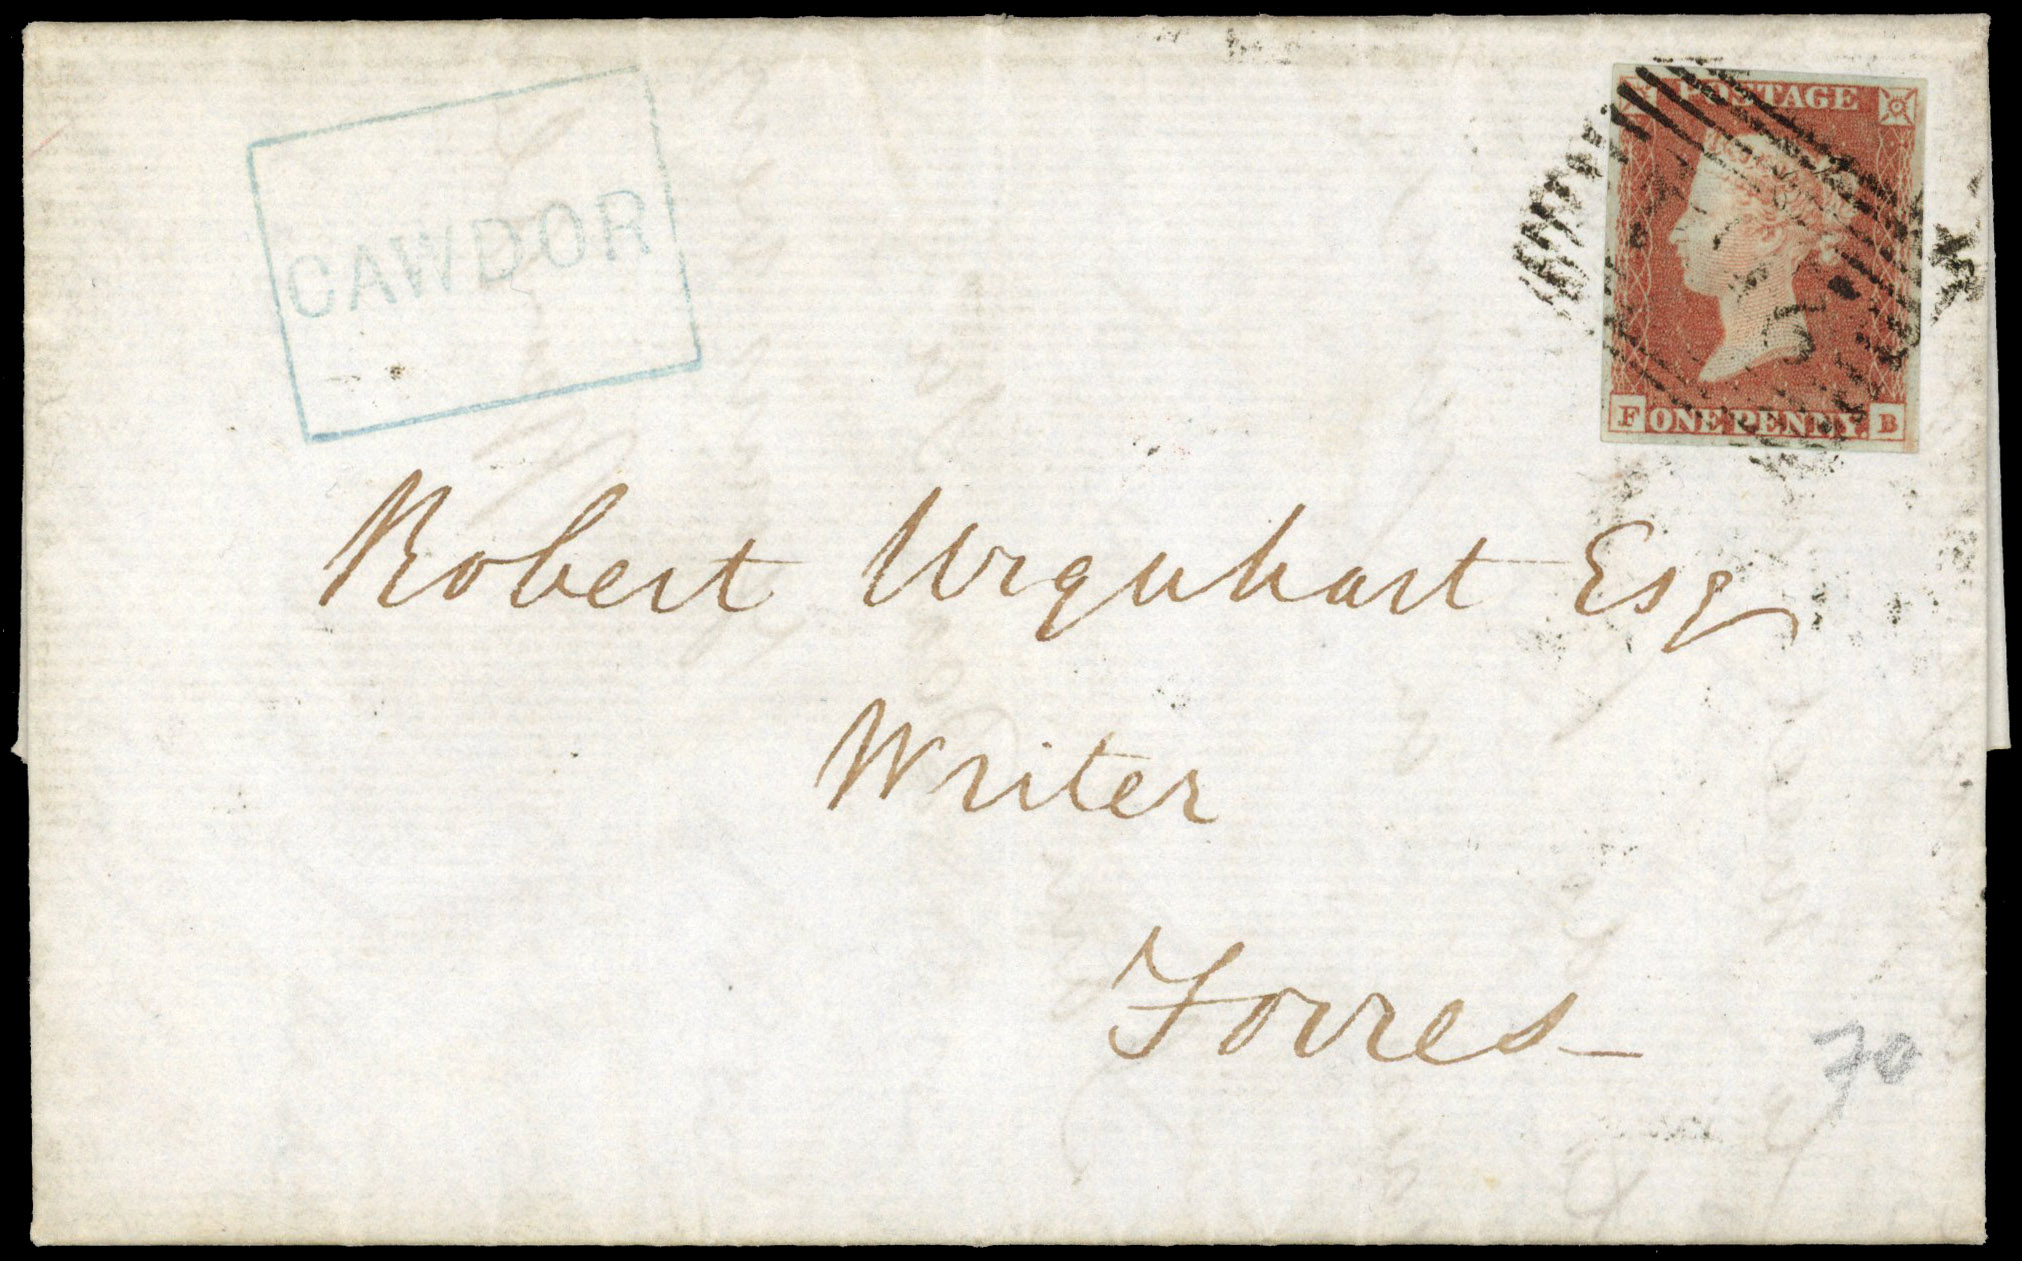 CAWDOR
POSTAGE
F ONE PENNY. B
Robert Urquhart Esq
Writer
Forres
70